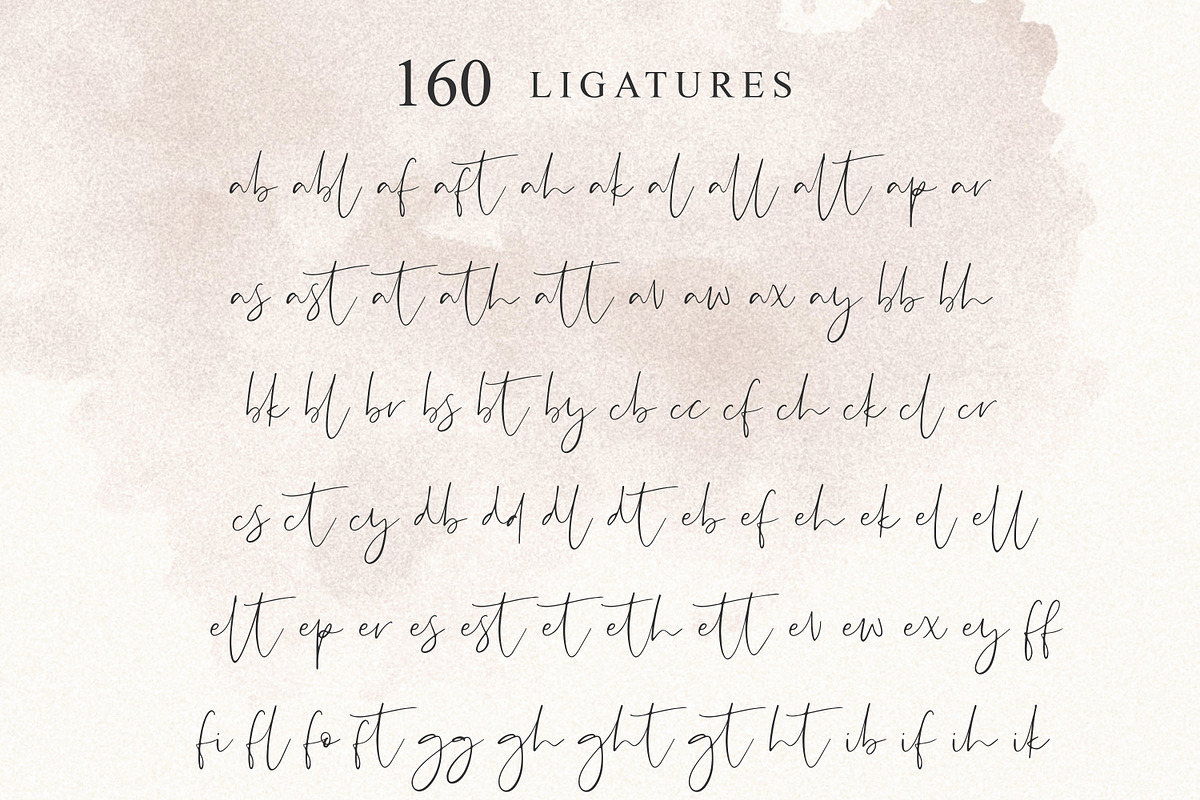 160 LIGATURES
ab abl af aft ah ak al all alt ap ar
as ast at ath att av aw ax ay bb bh
bk bl br bs bt by cb cc cf ch ck cl cr
cs ct cy db dd dl dt eb ef eh ek el ell
elt ep er es est et eth ett ev ew ex ey ff
fi fl fo ft gg gh ght gt ht ib if ih ik